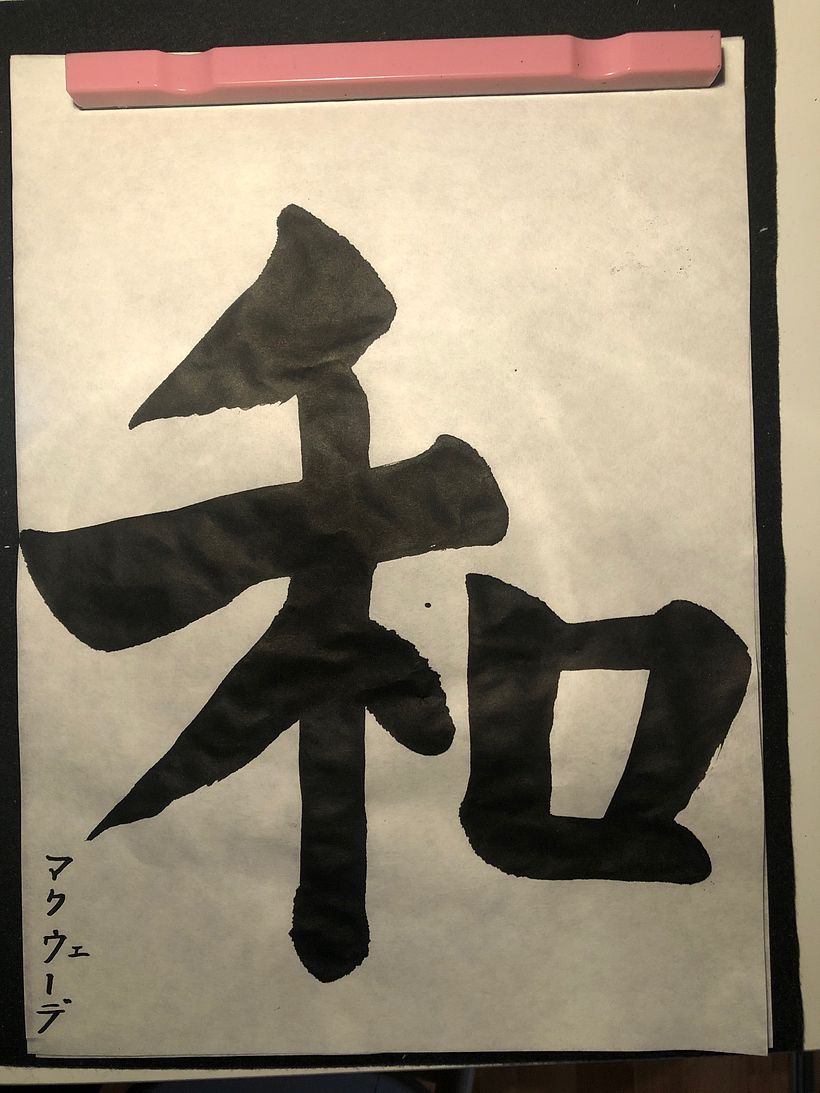 和
マクウェーデ